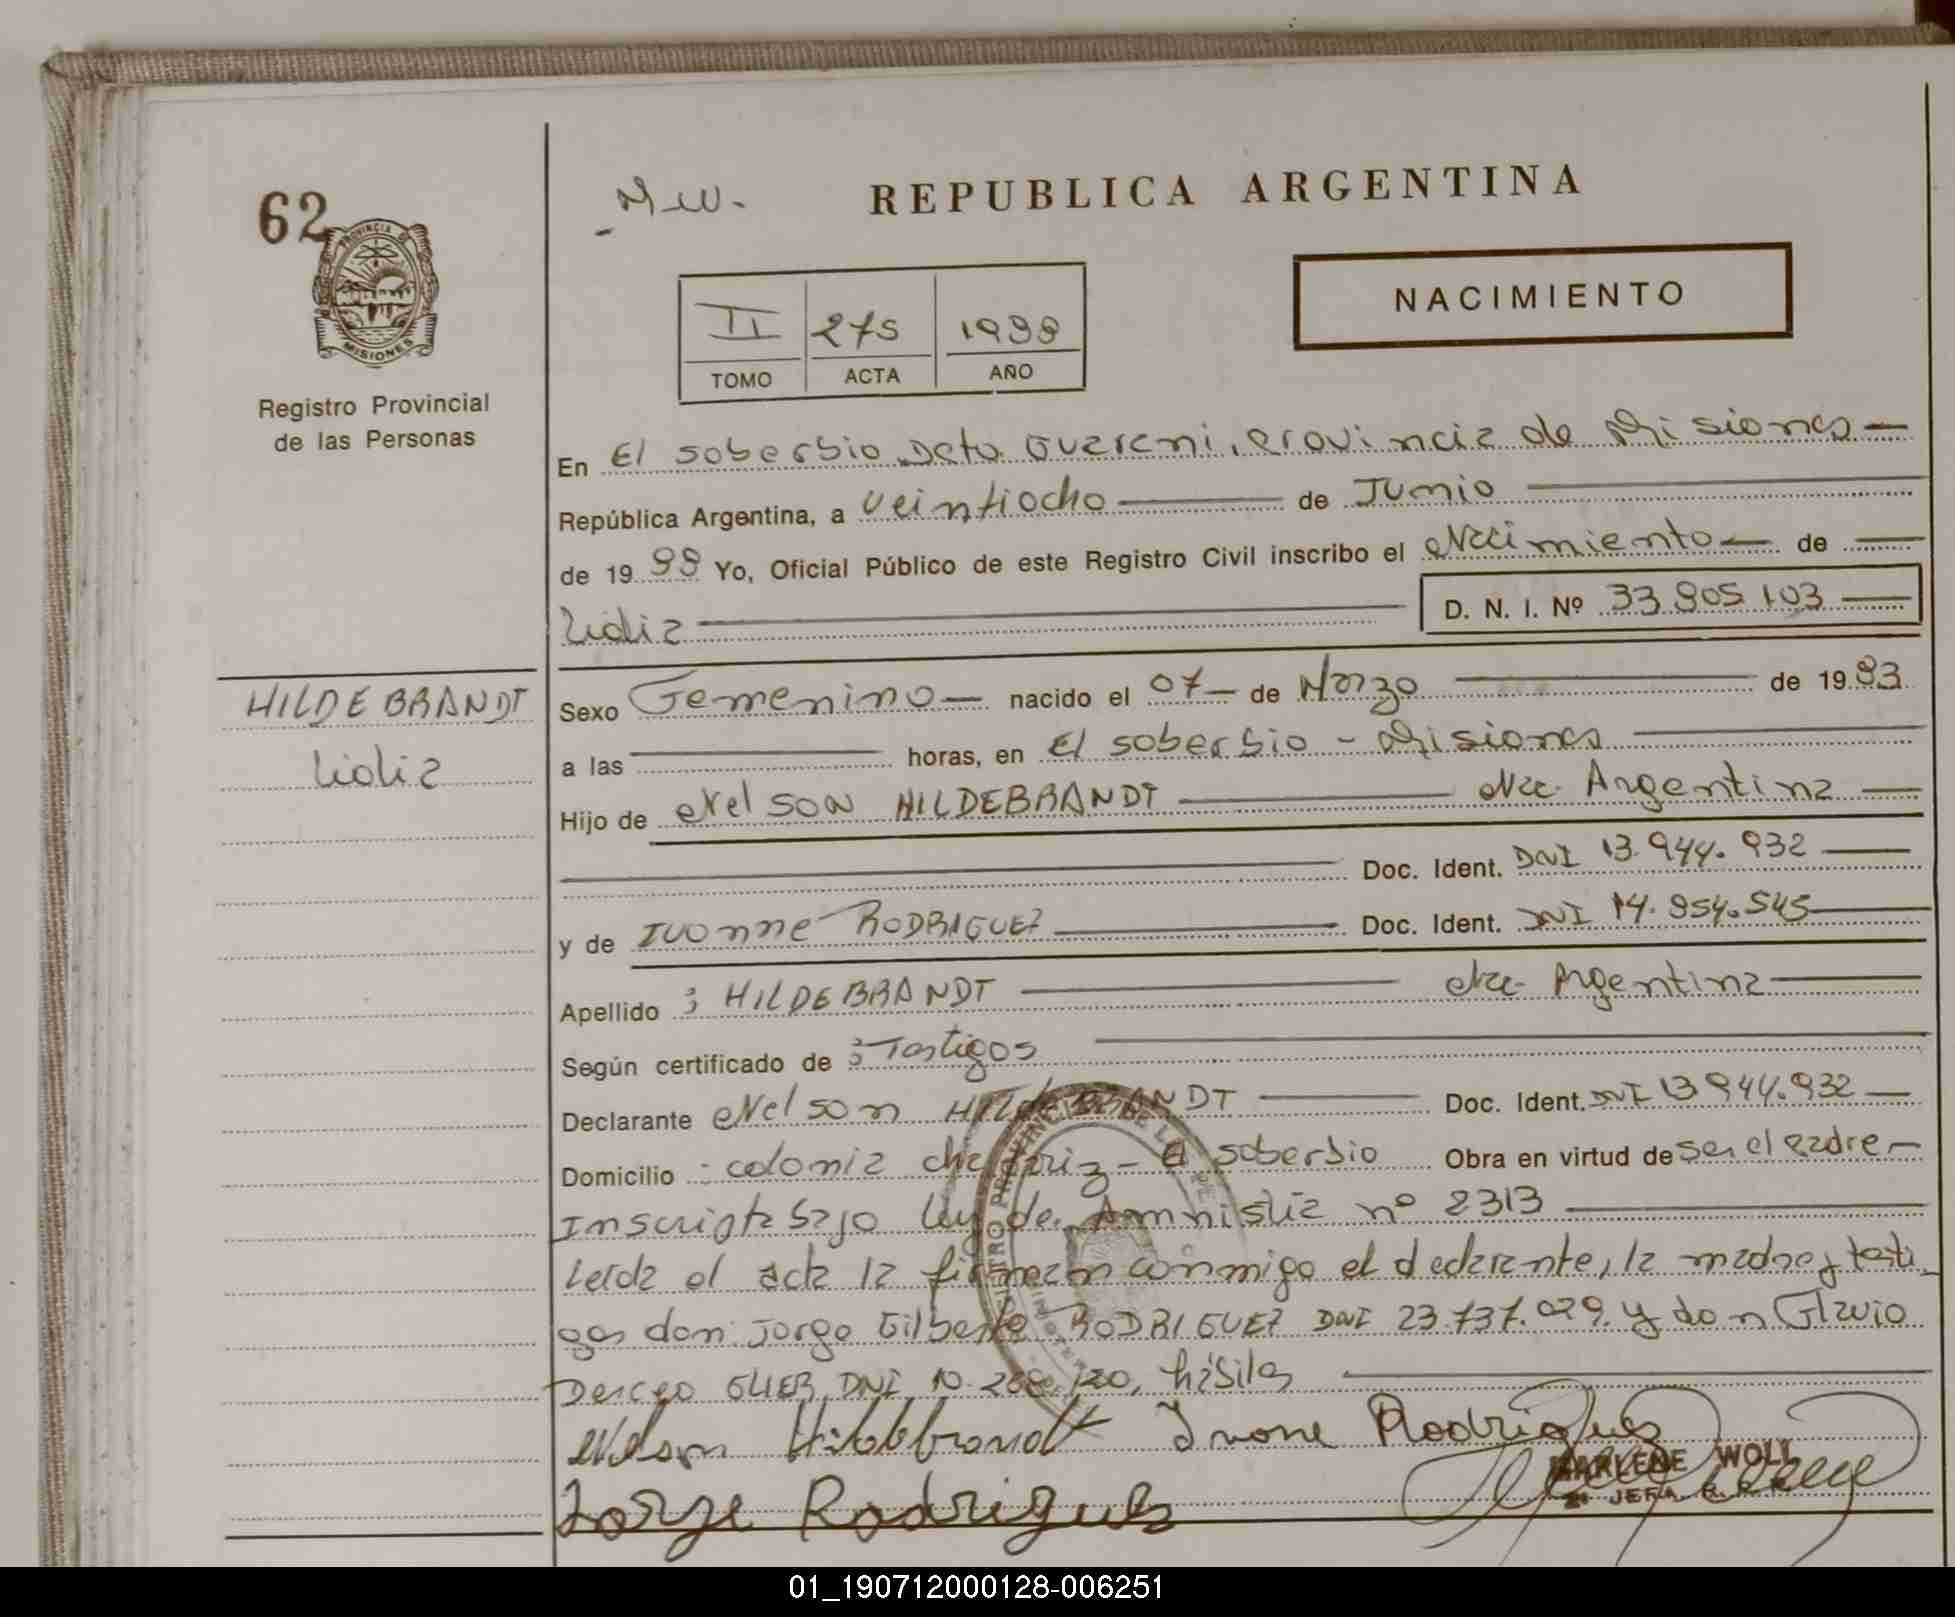 62
PROVINCIA DE
MISIONES
Registro Provincial
de las Personas
REPUBLICA ARGENTINA
NACIMIENTO
II 275 1999
TOMO ACTA AÑO
En El soberbio Dpto. Guarani, Provincia de Misiones
República Argentina, a veintiocho de Junio
de 19 99 Yo, Oficial Público de este Registro Civil inscribo el Nacimiento de
Lidia
D. N. I. Nº 33.905.103
HILDEBRANDT
Lidia
Sexo Femenino nacido el 07 de Marzo de 19 93
a las horas, en El soberbio - Misiones
Hijo de Nelson HILDEBRANDT Nac. Argentina
Doc. Ident. DNI 13.944.932
y de Ivonne RODRIGUEZ Doc. Ident. DNI 14.954.545
Apellido : HILDEBRANDT Nac. Argentina
Según certificado de : Testigos
Declarante Nelson HILDEBRANDT Doc. Ident. DNI 13.944.932
Domicilio : colonia - El soberbio Obra en virtud de ser el padre
Inscripta bajo Ley de Amnistia nº 2313
Leida el acta la firman conmigo el declarante, la madre y testi
gos don: Jorge Gilberto RODRIGUEZ DNI 23.737.029. y don Flavio
DNI hábiles
Nelson Hildebrandt Ivone Rodriguez
MARLENE WOLL
Jorge Rodriguez
01_190712000128-006251